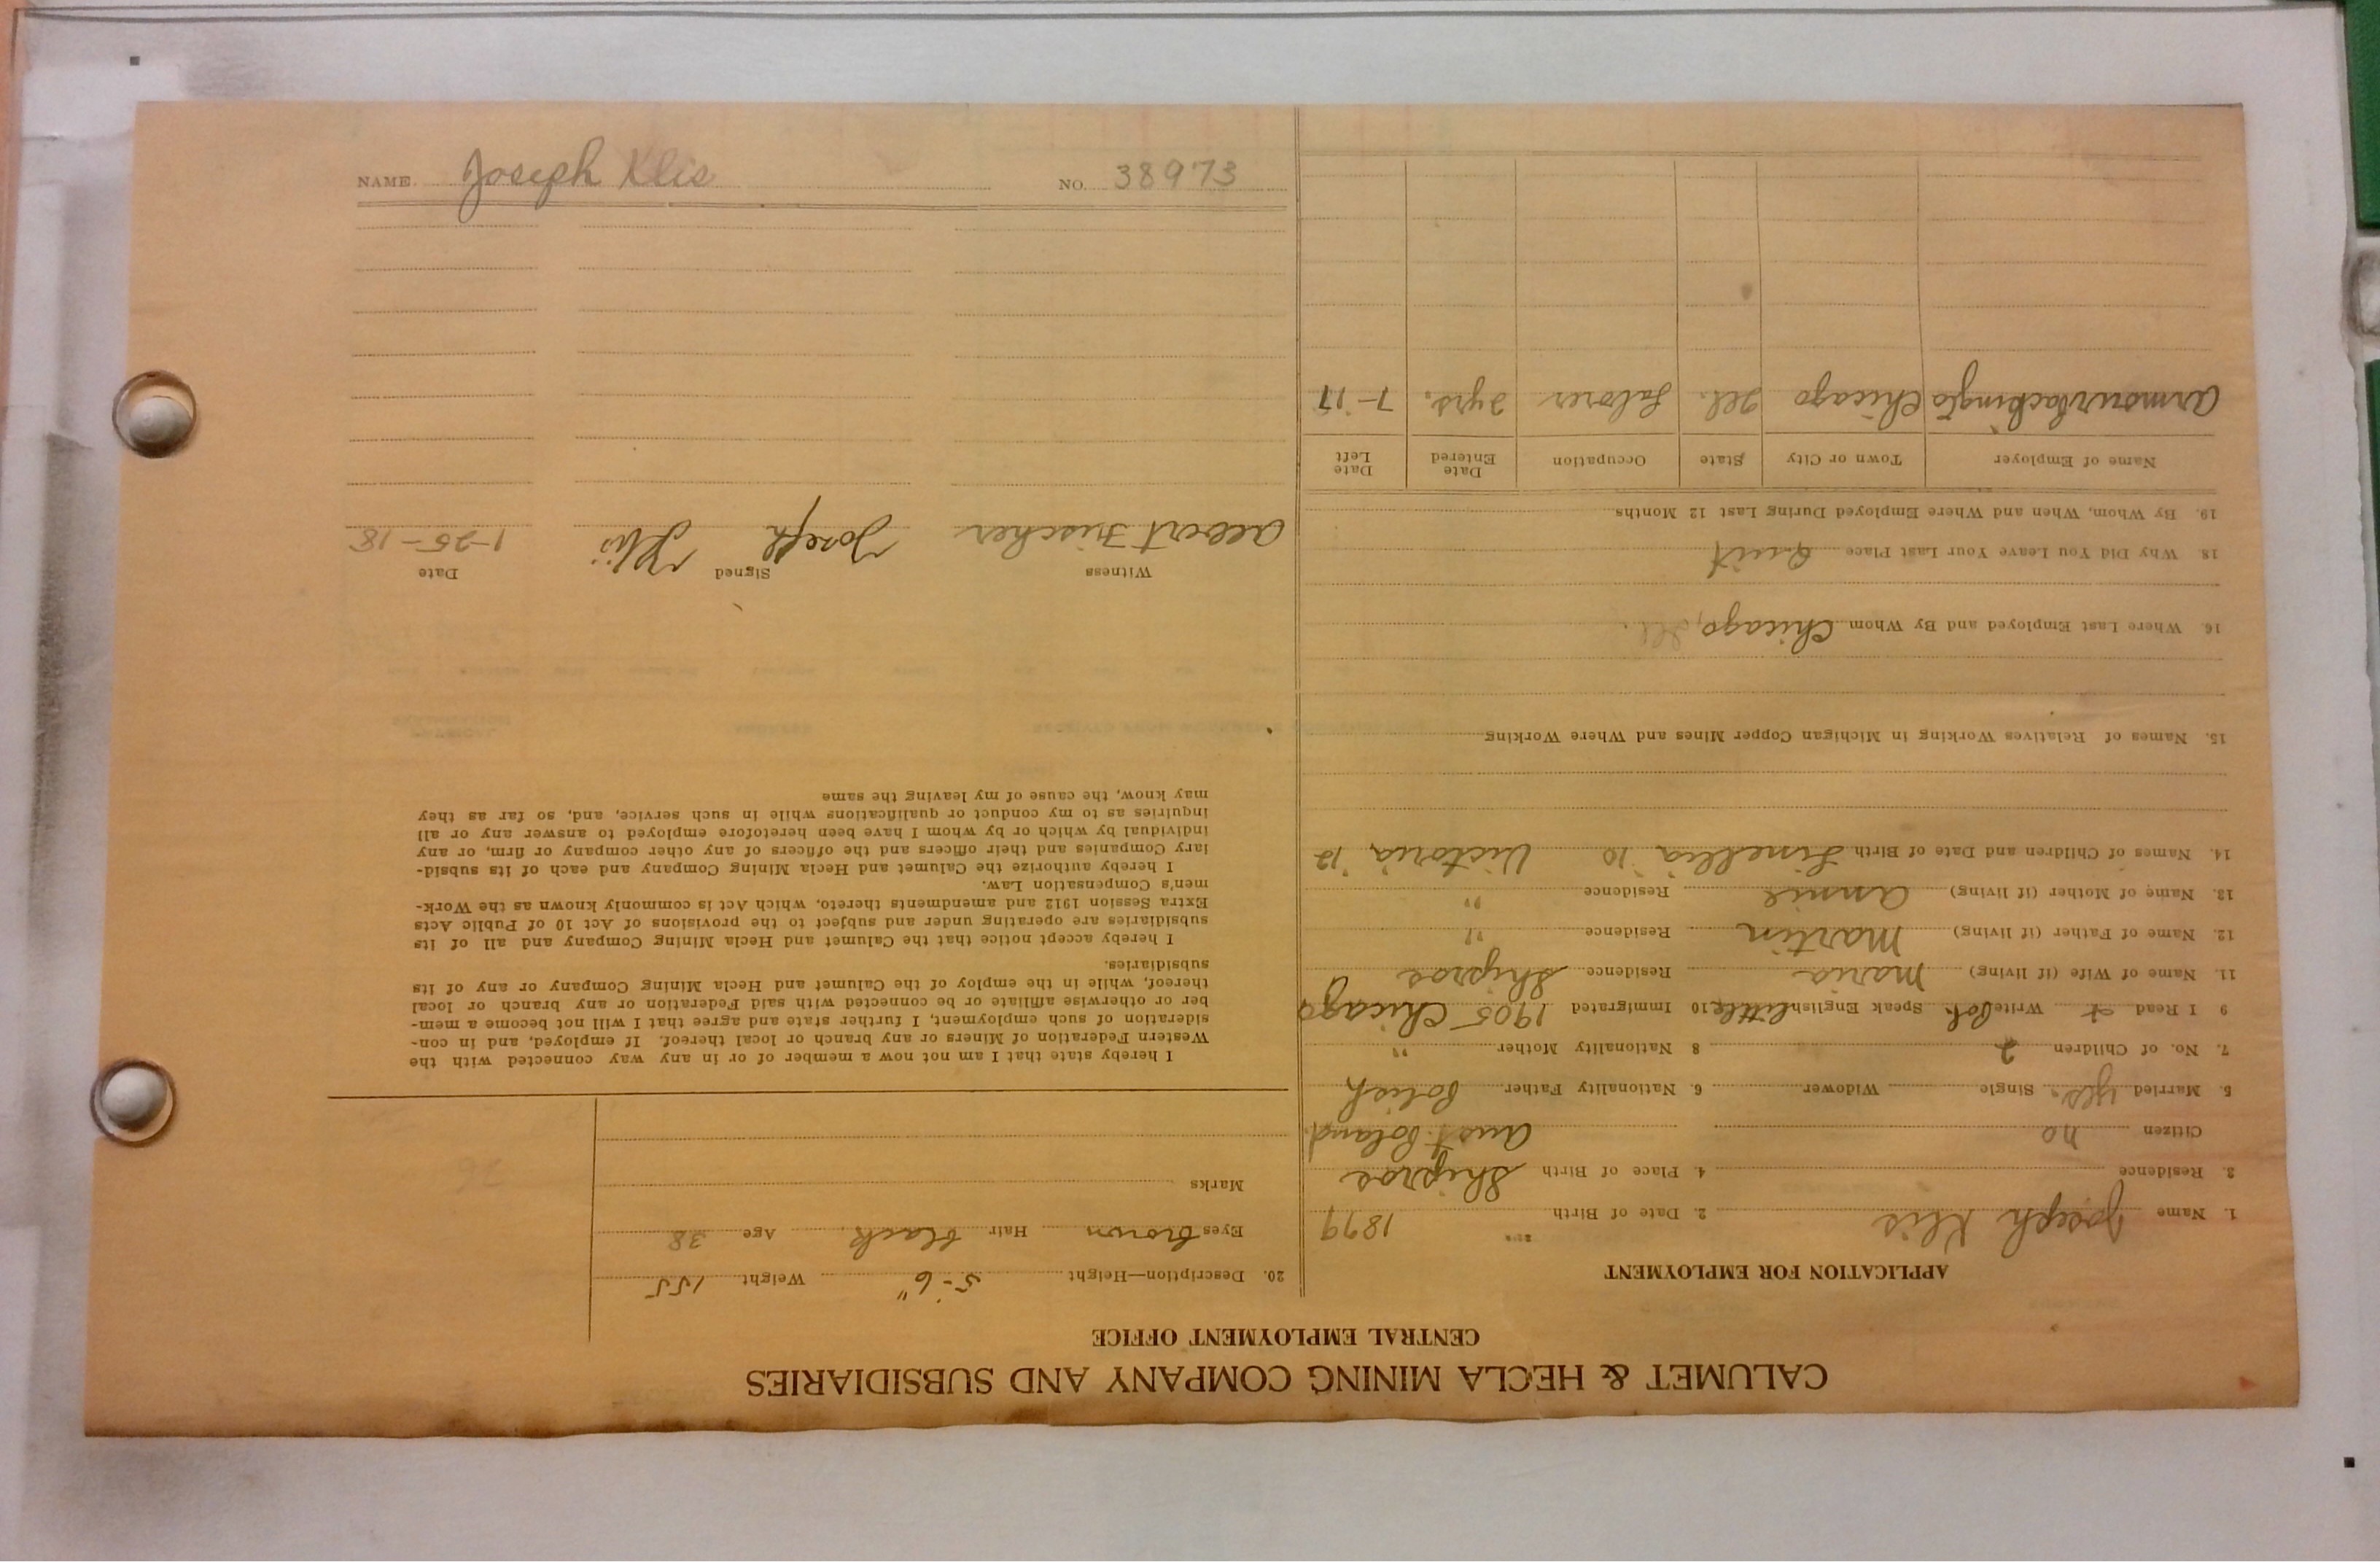 CALUMET & HECLA MINING COMPANY AND SUBSIDIARIES
CENTRAL EMPLOYMENT OFFICE
APPLICATION FOR EMPLOYMENT
1. Name Joseph Klis 2. Date of Birth 1879
3. Residence 4. Place of Birth
Citizen no Aust. Poland.
5. Married yes. Single Widower 6. Nationality Father Polish
7. No. of Children 2 8 Nationality Mother "
9 I Read & Write Pol. Speak English little 10 Immigrated 1905 Chicago
11. Name of Wife (if living) Maria Residence
12. Name of Father (if living) Martin Residence "
13. Name of Mother (if living) Annie Residence "
14. Names of Children and Date of Birth '10 Victoria '12
15. Names of Relatives Working in Michigan Copper Mines and Where Working
16. Where Last Employed and By Whom Chicago, Ill.
18 Why Did You Leave Your Last Place Quit
19. By Whom, When and Where Employed During Last 12 Months
Name of Employer Town or City State Occupation Date Entered Date Left
Armour Packing Co Chicago Ill. Laborer 2 yrs. 7-17
20. Description—Height 5-6" Weight 155
Eyes brown Hair black. Age 38
Marks
26
I hereby state that I am not now a member of or in any way connected with the
Western Federation of Miners or any branch or local thereof. If employed, and in con-
sideration of such employment, I further state and agree that I will not become a mem-
ber or otherwise affiliate or be connected with said Federation or any branch or local
thereof, while in the employ of the Calumet and Hecla Mining Company or any of its
subsidiaries.
I hereby accept notice that the Calumet and Hecla Mining Company and all of its
subsidiaries are operating under and subject to the provisions of Act 10 of Public Acts
Extra Session 1912 and amendments thereto, which Act is commonly known as the Work-
men's Compensation Law.
I hereby authorize the Calumet and Hecla Mining Company and each of its subsid-
iary Companies and their officers and the officers of any other company or firm, or any
individual by which or by whom I have been heretofore employed to answer any or all
inquiries as to my conduct or qualifications while in such service, and, so far as they
may know, the cause of my leaving the same
Witness Signed Date
Albert Fischer Joseph Klis 1-25-18
NAME Joseph Klis NO. 38973